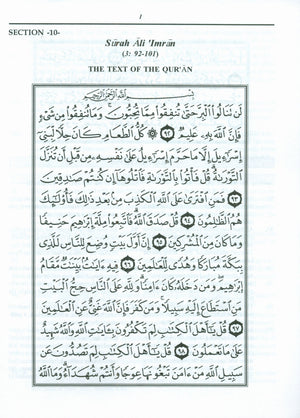 1
SECTION -10-
Sūrah Āli 'Imrān
(3: 92-101)
THE TEXT OF THE QUR'ĀN
بِسْمِ اللَّهِ الرَّحْمَٰنِ الرَّحِيمِ
لَن نَنَالُوا۟ الْبِرَّ حَتَّىٰ تُنفِقُوا۟ مِمَّا تُحِبُّونَ ۚ وَمَا تُنفِقُوا۟ مِن شَىْءٍ
فَإِنَّ اللَّهَ بِهِۦ عَلِيمٌ ﴿٩٢﴾ ۞ كُلُّ الطَّعَامِ كَانَ حِلًّا لِّبَنِىٓ
إِسْرَٰٓءِيلَ إِلَّا مَا حَرَّمَ إِسْرَٰٓءِيلُ عَلَىٰ نَفْسِهِۦ مِن قَبْلِ أَن تُنَزَّلَ
التَّوْرَىٰةُ ۗ قُلْ فَأْتُوا۟ بِالتَّوْرَىٰةِ فَاتْلُوهَآ إِن كُنتُمْ صَٰدِقِينَ
﴿٩٣﴾ فَمَنِ افْتَرَىٰ عَلَى اللَّهِ الْكَذِبَ مِنۢ بَعْدِ ذَٰلِكَ فَأُو۟لَٰٓئِكَ
هُمُ الظَّٰلِمُونَ ﴿٩٤﴾ قُلْ صَدَقَ اللَّهُ ۗ فَاتَّبِعُوا۟ مِلَّةَ إِبْرَٰهِيمَ حَنِيفًا
وَمَا كَانَ مِنَ الْمُشْرِكِينَ ﴿٩٥﴾ إِنَّ أَوَّلَ بَيْتٍ وُضِعَ لِلنَّاسِ لَلَّذِى
بِبَكَّةَ مُبَارَكًا وَهُدًى لِّلْعَٰلَمِينَ ﴿٩٦﴾ فِيهِ ءَايَٰتٌۢ بَيِّنَٰتٌ مَّقَامُ
إِبْرَٰهِيمَ ۖ وَمَن دَخَلَهُۥ كَانَ ءَامِنًا ۗ وَلِلَّهِ عَلَى النَّاسِ حِجُّ الْبَيْتِ
مَنِ اسْتَطَاعَ إِلَيْهِ سَبِيلًا ۚ وَمَن كَفَرَ فَإِنَّ اللَّهَ غَنِىٌّ عَنِ الْعَٰلَمِينَ
﴿٩٧﴾ قُلْ يَٰٓأَهْلَ الْكِتَٰبِ لِمَ تَكْفُرُونَ بِـَٔايَٰتِ اللَّهِ وَاللَّهُ شَهِيدٌ
عَلَىٰ مَا تَعْمَلُونَ ﴿٩٨﴾ قُلْ يَٰٓأَهْلَ الْكِتَٰبِ لِمَ تَصُدُّونَ عَن
سَبِيلِ اللَّهِ مَنْ ءَامَنَ تَبْغُونَهَا عِوَجًا وَأَنتُمْ شُهَدَآءُ ۗ وَمَا اللَّهُ